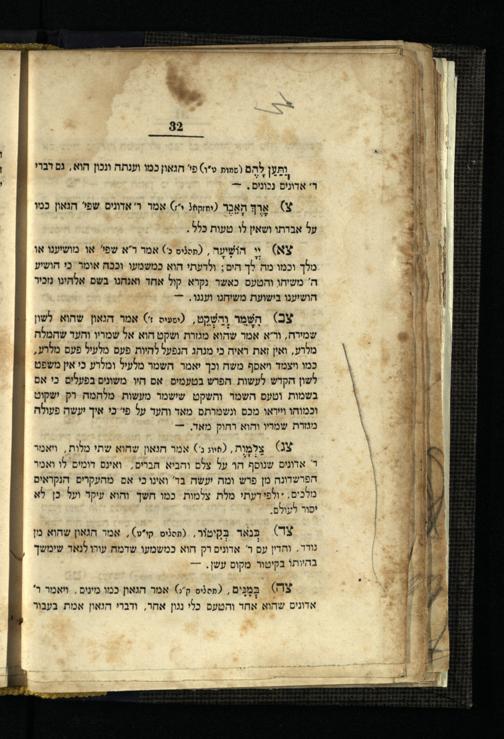 32
וַתַּעַן לָהֶם (שמות ט״ו) פי׳ הגאון כמו וענתה ונכון הוא, גם דברי
ר׳ אדונים נכונים. —
צ) אֶרֶךְ הָאֵבֶר (יחזקאל י״ז) אמר ר׳ אדונים שפי׳ הגאון כמו
על אברתו ושאין לו טעות כלל.
צא) יְיָ הוֹשִׁיעָה, (תהלים כ׳) אמר ר״א שפי׳ או מושיענו או
מלך וכמו מה לך הים; ולדעתי הוא כמשמעו וככה אומר כי הושיע
ה׳ משיחו והטעם כאשר נקרא קול אחד ואנחנו בשם אלהינו נזכיר
הושיענו בישועת משיחנו ועננו. —
צב) הִשָּׁמֵר וְהַשְׁקֵט, (ישעיה ז׳) אמר הגאון שהוא לשון
שמירה, ור״א אמר שהוא מגזרת ושקט הוא אל שמריו והעד שהמלה
מלרע, ואין זאת ראיה כי מנהג הנפעל להיות פעם מלעיל פעם מלרע,
כמו ויצמד ויאסף משה וכך יאמר השמר מלעיל ומלרע כי אין משפט
לשון הקדש לעשות הפרש בטעמים אם היו משונים בפעלים כי אם
בשמות וטעם השמר והשקט שישמר מעשות מלחמה רק ישקוט
וכמוהו וייראו מכם ונשמרתם מאד והעד על פי׳ כי איך יעשה פעולה
מגזרת שמריו והוא רחוק מאד. —
צג) צַלְמָוֶת, (איוב כ׳) אמר הגאון שהוא שתי מלות, ויאמר
ר׳ אדונים שנוסף הו׳ על צלם והביא חברים, ואינם דומים לו ואמר
הפרשדונה מן פרש ומה יעשה בד׳ ואינו כי אם מהעקרים הנקראים
מלכים. ולפי דעתי מלת צלמות כמו חשך והוא עיקר ועל כן לא
יסור לעולם.
צד) כְּנֹאד בְּקִיטוֹר, (תהלים קי״ט), אמר הגאון שהוא מן
נודד, והדין עם ר׳ אדונים רק הוא כמשמעו שדמה עורו לנאד שימשך
בהיותו בקיטור מקום עשן. —
צה) בְּמִנִּים, (תהלים ק״נ) אמר הגאון כמו מינים, ויאמר ר׳
אדונים שהוא אחד והטעם כלי נגון אחד, ודברי הגאון אמת בעבור